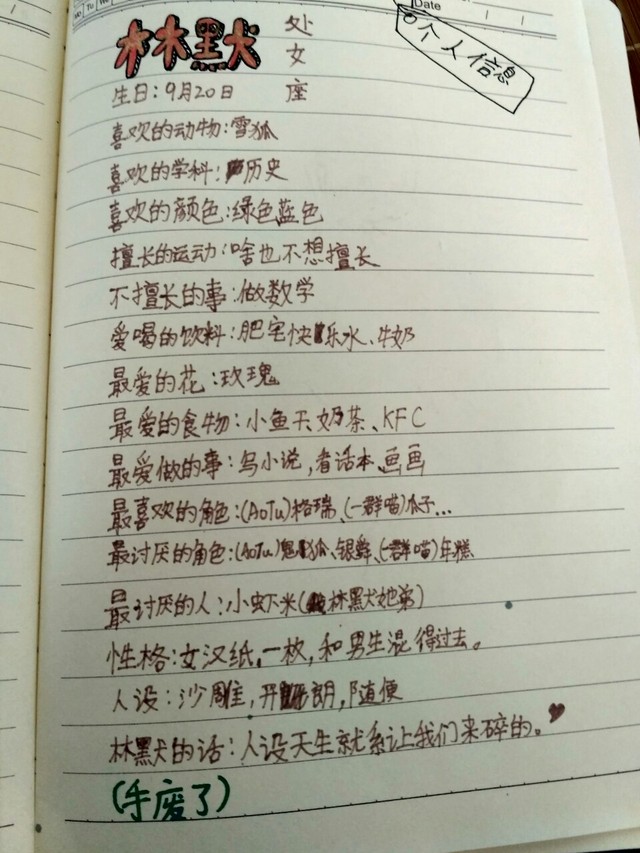 Mo Tu We
Date
个人信息
林默
处女座
生日:9月20日
喜欢的动物:雪狐
喜欢的学科:历史
喜欢的颜色:绿色蓝色
擅长的运动:啥也不想擅长
不擅长的事:做数学
爱喝的饮料:肥宅快乐水、牛奶
最爱的花:玫瑰
最爱的食物:小鱼干、奶茶、KFC
最爱做的事:写小说,看话本、画画
最喜欢的角色:(AoTu)格瑞、(一群喵)瓜子...
最讨厌的角色:(AoTu)鬼狐、银舜、(一群喵)年糕
最讨厌的人:小虾米(林默她弟)
性格:女汉纸,一枚,和男生混得过去。
人设:沙雕,开朗,随便
林默的话:人设天生就系让我们来碎的。
(手废了)